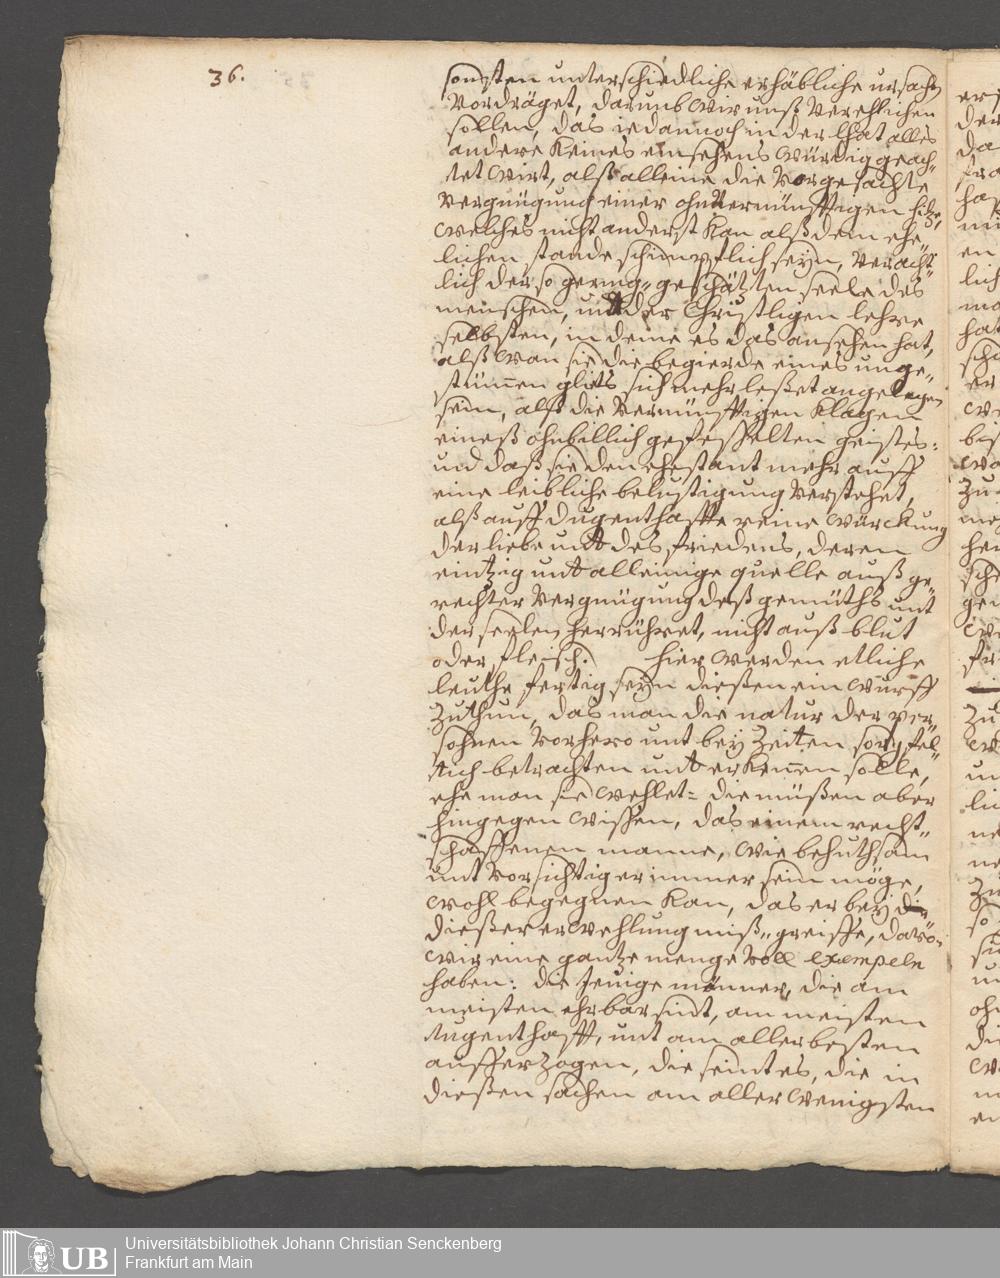 36.
sonsten unterschiedliche erhäbliche ursachen
vordräget, darumb wir unß verehlichen
sollen, das iedannoch in der that alles
andere keines einsehens würdig geach-
tet wirt, alß alleine die vorgesachte
vergnügung einer ohnvernünfftigen hitze,
welches nicht anderst kan alß dem ehe-
lichen stande schimpflich seyn, veracht-
lich der so gering-geschätzten seele des
menschen, und der Christligen lehre
selbsten, in deme es das ansehen hat,
alß wan sie die begierde eines unge-
stümen glits sich mehr leßet angelegen
sein, alß die vernünfftigen klagen
eineß ohnbillich gefesselten geistes:
und daß sie den ehestant mehr auff
eine leibliche belustigung verstehet,
alß auff dugenthaffte reine würckung
der liebe undt des friedens, deren
eintzig unt alleinige quelle auß ge-
rechter vergnügung deß gemüths unt
der seelen herrühret, nicht auß blut
oder fleisch. hier werden etliche
leuthe fertig seyn dießen einwurff
zuthun, das man die natur der per-
sohnen vorhero unt bey zeiten sorgfel-
tich betrachten undt erkennen solle,
ehe man sie wehlet: die müßen aber
hingegen wissen, das einem recht-
schaffenen manne, wie behuthsam
unt vorsichtig er immer sein möge,
wohl begegnen kan, das er bey
dießer erwehlung miß-greiffe, davon
wir eine gantze menge voll exempeln
haben: die jenige männer, die am
meisten ehrbar sint, am meisten
tugenthafft, unt am allerbesten
aufferzogen, die seint es, die in
dießen sachen am aller wenigsten
UB
Universitätsbibliothek Johann Christian Senckenberg
Frankfurt am Main